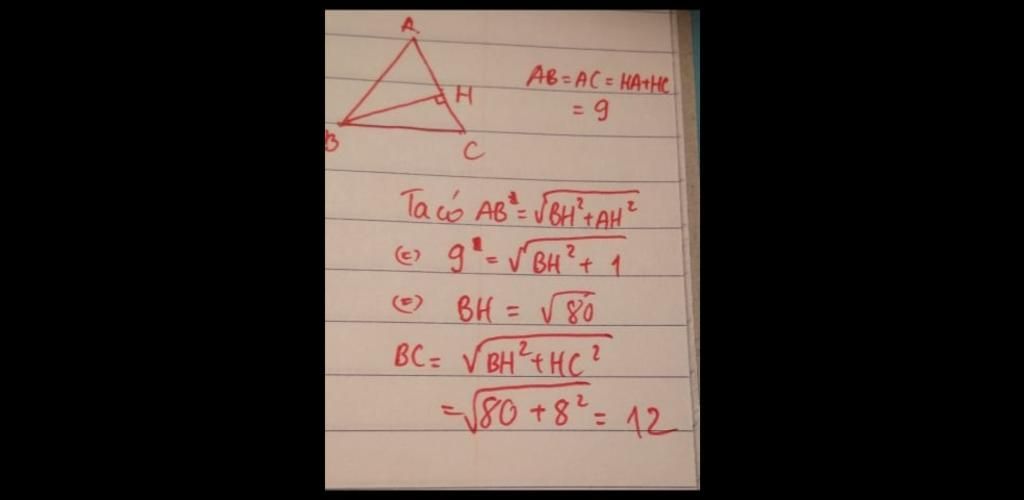 A
H
B
C
AB = AC = HA+HC
= 9
Ta có AB = √(BH² + AH²)
(=) 9 = √(BH² + 1)
(=) BH = √80
BC = √(BH² + HC²)
= √(80 + 8²) = 12